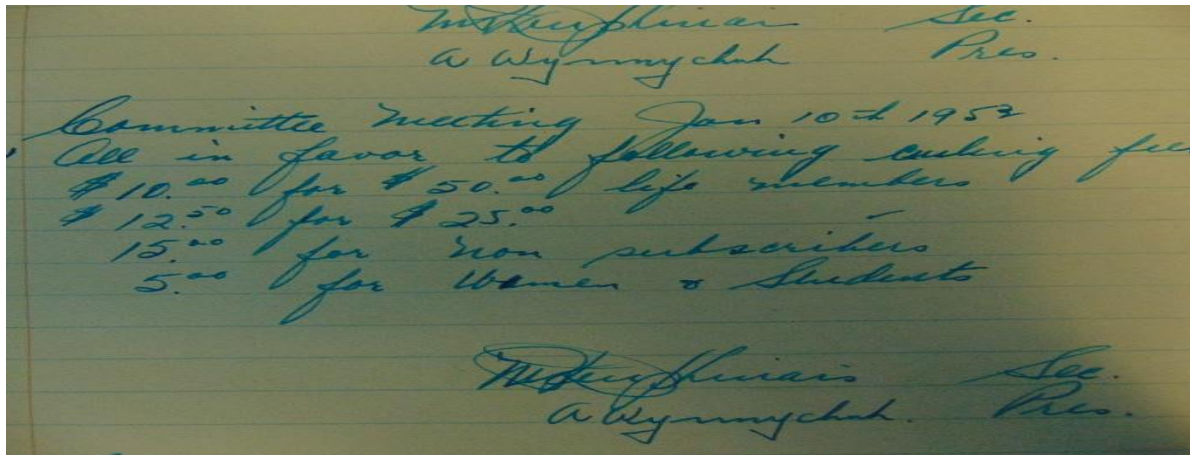 Sec.
A Wynnychuk Pres.
Committee Meeting Jan 10th 1953
All in favor to following curling fees
$10.00 for $50.00 life members
$12.50 for $25.00 "
15.00 for non subscribers
5.00 for Women & Students
Sec.
A Wynnychuk. Pres.